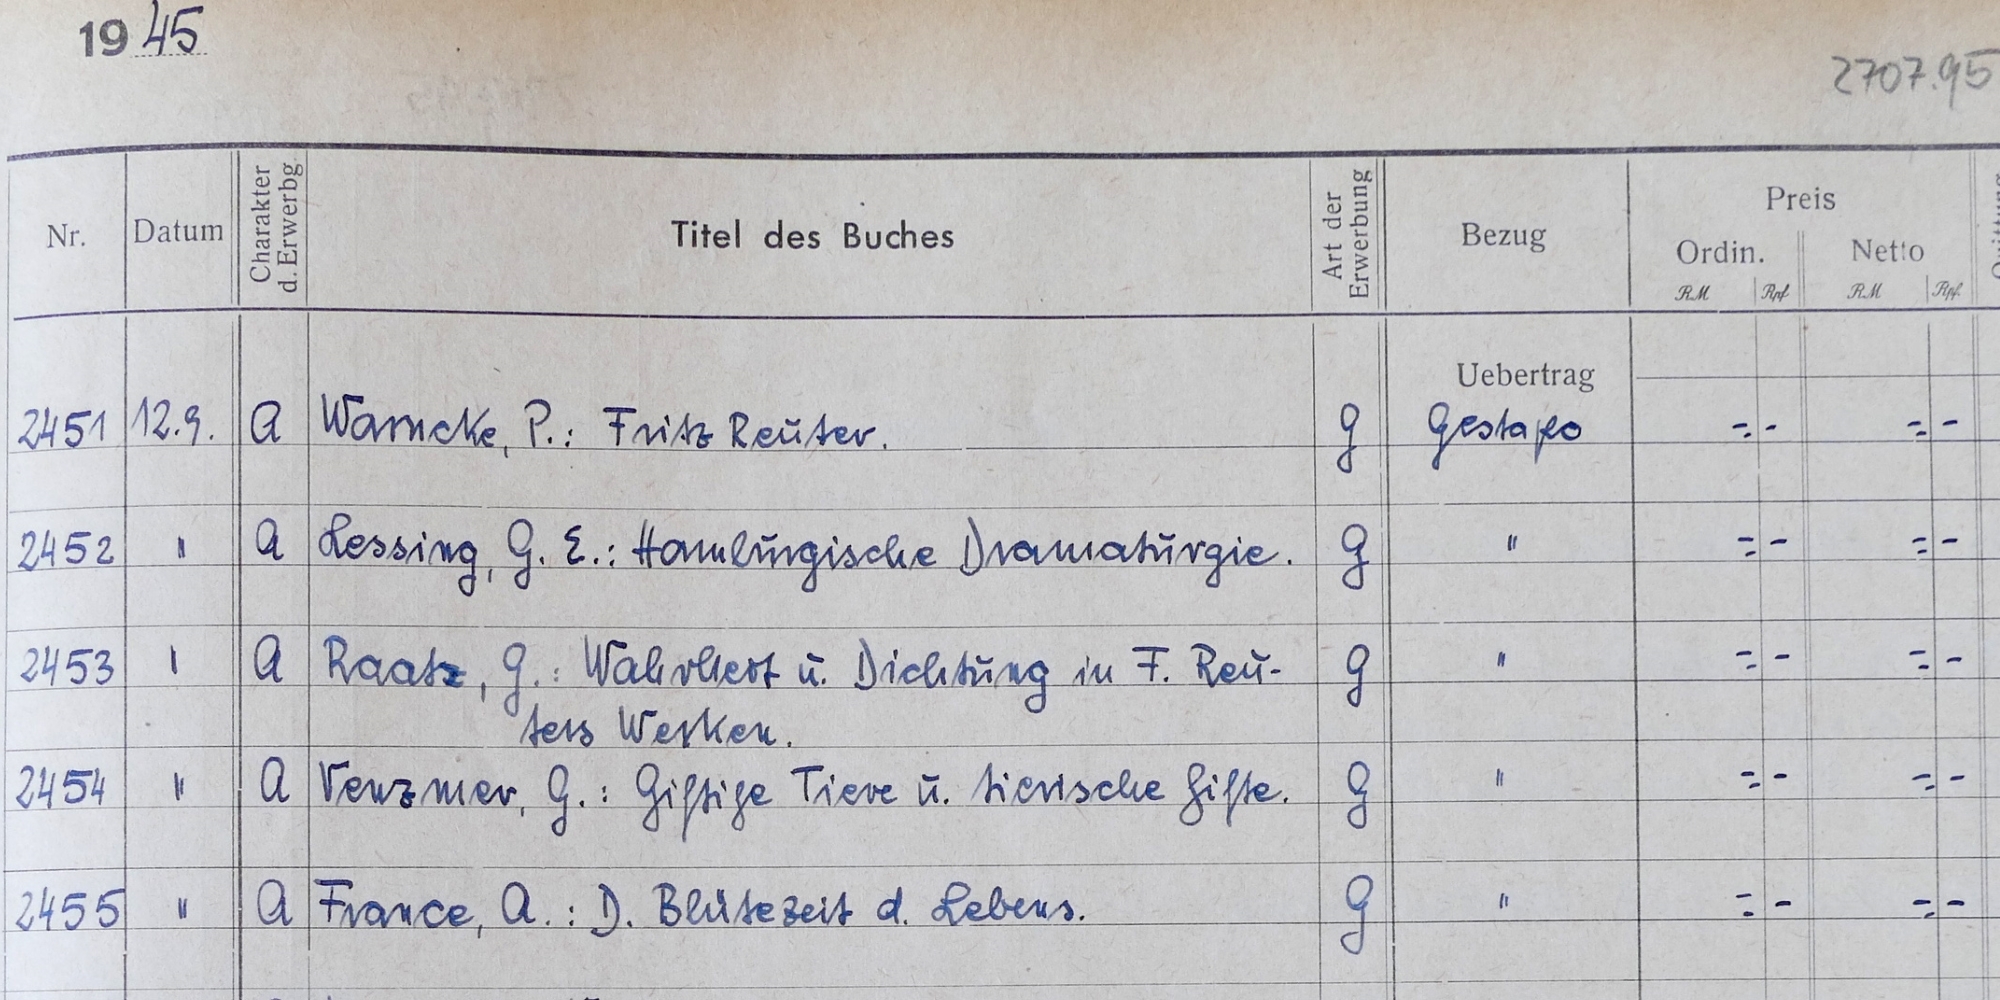 1945
2707.95
Nr. Datum Charakter d. Erwerbg. Titel des Buches Art der Erwerbung Bezug Preis
Ordin. Netto
RM Rpf RM Rpf.
Uebertrag
2451 12.9. A Warncke, P.: Fritz Reuter. G Gestapo =.- =.-
2452 " A Lessing, G. E.: Hamburgische Dramaturgie. G " =.- =.-
2453 " A Raatz, G.: Wahrheit u. Dichtung in F. Reu-
ters Werken. G " =.- =.-
2454 " A Venzmer, G.: Giftige Tiere u. tierische Gifte. G " =.- =.-
2455 " A France, A.: D. Blütezeit d. Lebens. G " =.- =.-